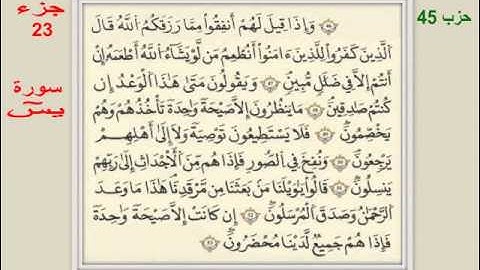 جزء
23
سورة
يس
حزب 45
وَإِذَا قِيلَ لَهُمْ أَنفِقُوا۟ مِمَّا رَزَقَكُمُ ٱللَّهُ قَالَ
ٱلَّذِينَ كَفَرُوا۟ لِلَّذِينَ ءَامَنُوٓا۟ أَنُطْعِمُ مَن لَّوْ يَشَآءُ ٱللَّهُ أَطْعَمَهُۥٓ إِنْ
أَنتُمْ إِلَّا فِى ضَلَٰلٍ مُّبِينٍ وَيَقُولُونَ مَتَىٰ هَٰذَا ٱلْوَعْدُ إِن
كُنتُمْ صَٰدِقِينَ مَا يَنظُرُونَ إِلَّا صَيْحَةً وَٰحِدَةً تَأْخُذُهُمْ وَهُمْ
يَخِصِّمُونَ فَلَا يَسْتَطِيعُونَ تَوْصِيَةً وَلَآ إِلَىٰٓ أَهْلِهِمْ
يَرْجِعُونَ وَنُفِخَ فِى ٱلصُّورِ فَإِذَا هُم مِّنَ ٱلْأَجْدَاثِ إِلَىٰ رَبِّهِمْ
يَنسِلُونَ قَالُوا۟ يَٰوَيْلَنَا مَنۢ بَعَثَنَا مِن مَّرْقَدِنَا ۗ هَٰذَا مَا وَعَدَ
ٱلرَّحْمَٰنُ وَصَدَقَ ٱلْمُرْسَلُونَ إِن كَانَتْ إِلَّا صَيْحَةً وَٰحِدَةً
فَإِذَا هُمْ جَمِيعٌ لَّدَيْنَا مُحْضَرُونَ